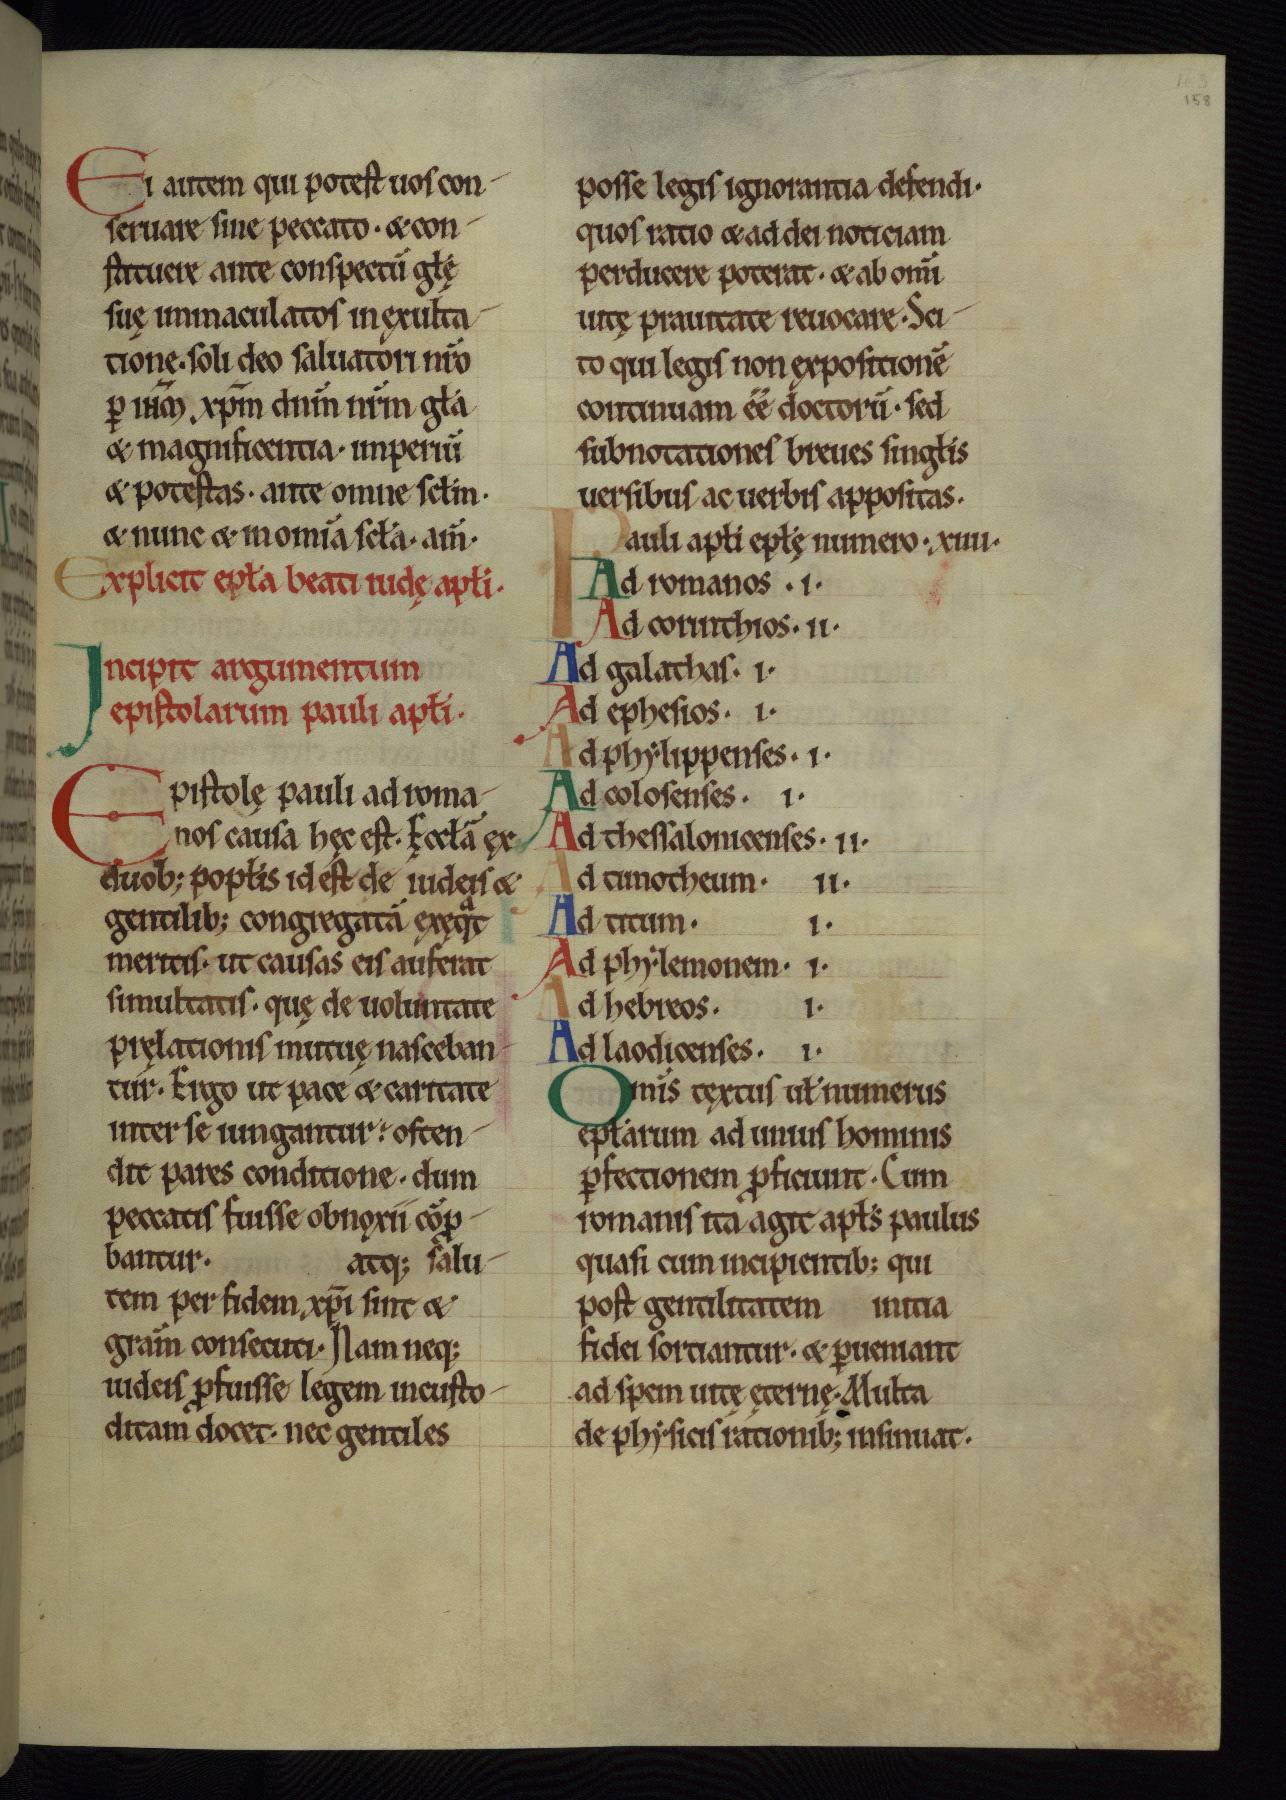 163
158
Ei autem qui potest uos con-
seruare sine peccato · & con-
stituere ante conspectū głę
suę inmaculatos in ęxulta-
tione · soli deo saluatori nr̄o
ꝑ iħm̄ xp̄m dnm̄ nr̄m gła
& magnificentia · imperiū
& potestas · ante omne sełm ·
& nunc & in omīa sełа · am̄ ·
Explicit epła beati iudę apłi ·
Incipit argumentum
epistolarum pauli apłi ·
Epistolę pauli ad roma-
nos causa hęc est · Ęccłā ęx
duob; popłis id est de iudeis &
gentilib; congregatā ęxęqͣt
meritis · ut causas eis auferat
simultatis · quę de uoluntate
pręlationis mutuę nasceban-
tur · Ergo ut pace & caritate
inter se iungantur · osten-
dit pares conditione · dum
peccatis fuisse obnoxii cōꝓ-
bantur · atq; salu-
tem per fidem xp̄i sint &
gram̄ consecuti · Nam neq;
iudeis ꝓfuisse legem incusto-
ditam docet · nec gentiles
posse legis ignorantia defendi ·
quos ratio & ad dei noticiam
perducere poterat · & ab omī
uitę prauitate reuocare · Sci-
to qui legis non ęxpositionē
continuam ēē doctorū · sed
subnotationes breues singłis
uersibus ac uerbis appositas ·
Pauli apłi epłę numero · xiiii ·
Ad romanos · i ·
Ad corinthios · ii ·
Ad galathas · i ·
Ad ephesios · i ·
Ad phylippenses · i ·
Ad colosenses · i ·
Ad thessalonicenses · ii ·
Ad timotheum · ii ·
Ad titum · i ·
Ad phylemonem · i ·
Ad hebreos · i ·
Ad laodicenses · i ·
Omīs tęxtus uł numerus
epłarum ad unius hominis
ꝑfectionem ꝓficiunt · Cum
romanis ita agit apłs paulus
quasi cum incipientib; qui
post gentilitatem initia
fidei sortiantur · & ꝑueniant
ad spem uitę ęternę · Multa
de physicis rationib; insinuat ·